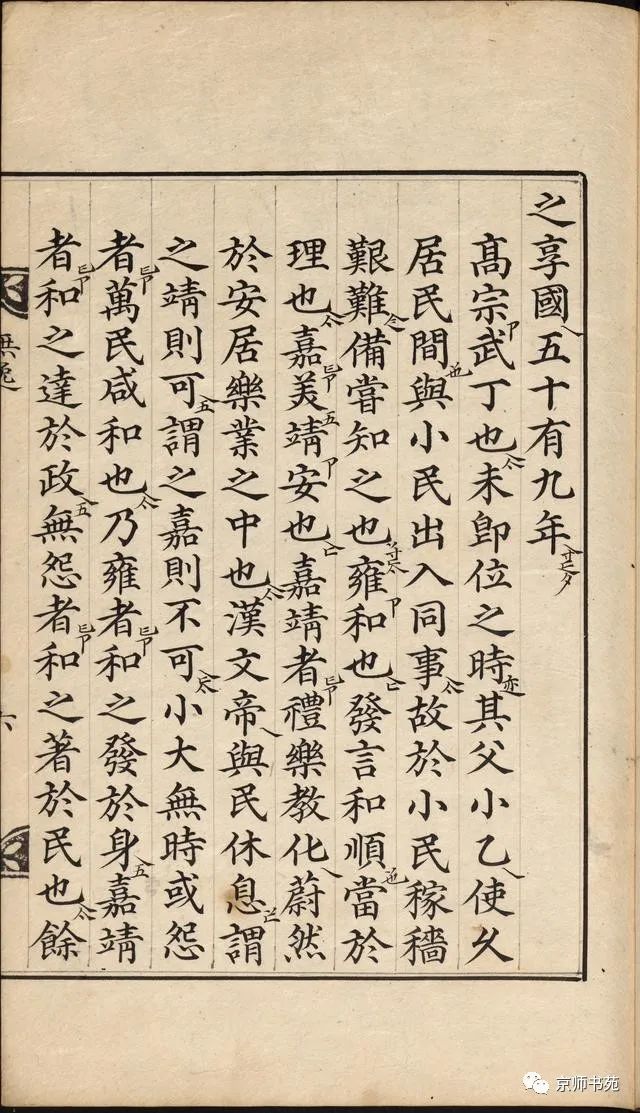 之享國五十有九年
高宗武丁也未卽位之時其父小乙使久
居民間與小民出入同事故於小民稼穡
艱難備嘗知之也雍和也發言和順當於
理也嘉美靖安也嘉靖者禮樂教化蔚然
於安居樂業之中也漢文帝與民休息謂
之靖則可謂之嘉則不可小大無時或怨
者萬民咸和也乃雍者和之發於身嘉靖
者和之達於政無怨者和之著於民也餘
無逸
六
京师书苑